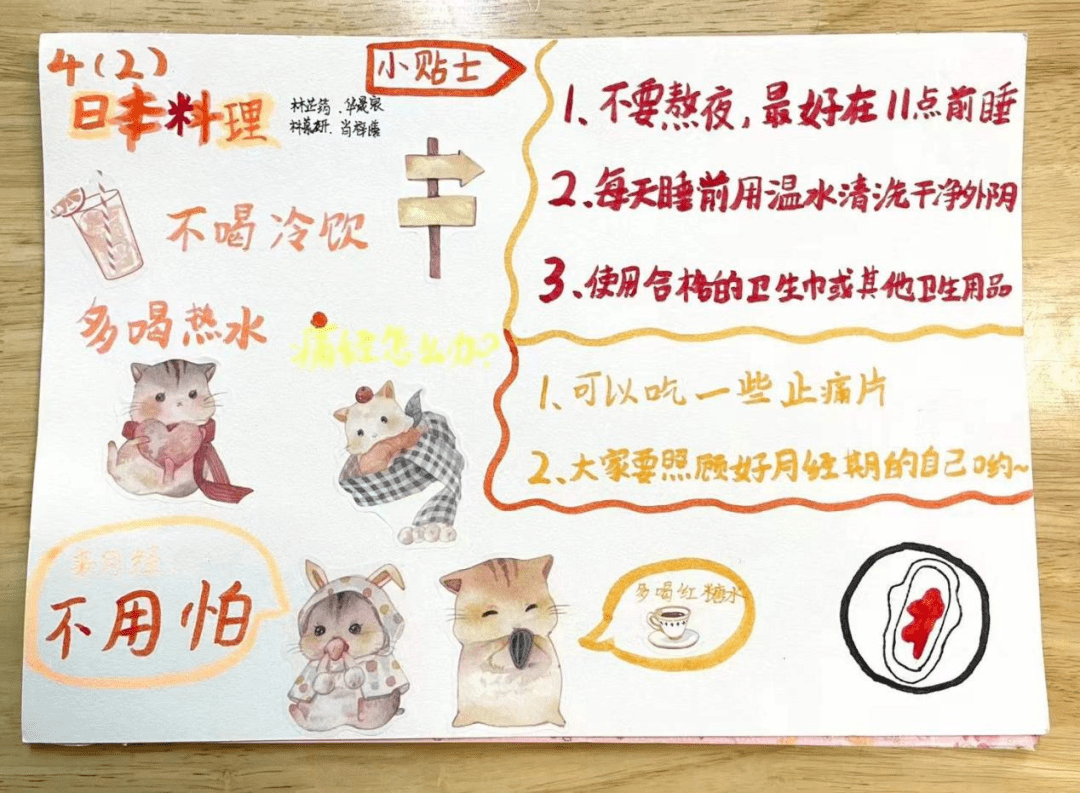 4(2)
日本料理
小贴士
不喝冷饮
多喝热水
痛经怎么办?
1、不要熬夜,最好在11点前睡
2、每天睡前用温水清洗干净外阴
3、使用合格的卫生巾或其他卫生用品
1、可以吃一些止痛片
2、大家要照顾好月经期的自己哟~
来月经
不用怕
多喝红糖水